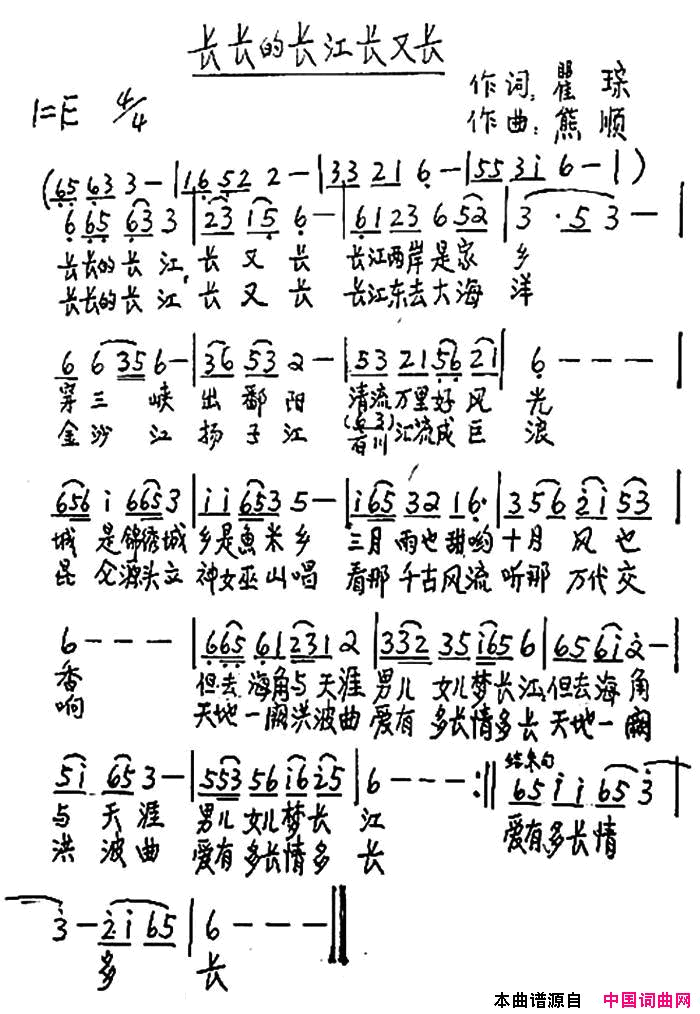 长长的长江长又长
作词：瞿琮
1=E 4/4
作曲：熊顺
(65 63 3 - | 16 52 2 - | 33 21 6 - | 55 3i 6 - | )
6 65 63 3 | 23 15 6 - | 61 23 6 52 | 3 · 5 3 - |
长长的长江，长又长 长江两岸是家乡
长长的长江，长又长 长江东去大海洋
6 6 35 6 - | 36 53 2 - | 53 21 56 21 | 6 - - - |
穿三峡出鄱阳 清流万里好风光
金沙江扬子江 百川汇流成巨浪
656 i 665 3 | i i 653 5 - | i65 32 16· | 356 2i 53 |
城是锦绣城 乡是鱼米乡 三月雨也甜哟十月风也
昆仑源头立 神女巫山唱 看那千古风流听那万代交
6 - - - | 665 61 231 2 | 332 35 i65 6 | 65 6i 2 - |
香 但去海角与天涯 男儿女儿梦长江；但去海角
响 天地一阕洪波曲 爱有多长情多长 天地一阙
5i 65 3 - | 553 56 i6 25 | 6 - - - :|| 结束句 65 i i 65 3 |
与天涯 男儿女儿梦长江
洪波曲 爱有多长情多长 爱有多长情
3 - 2·i 65 | 6 - - - ||
多长
本曲谱源自 中国词曲网